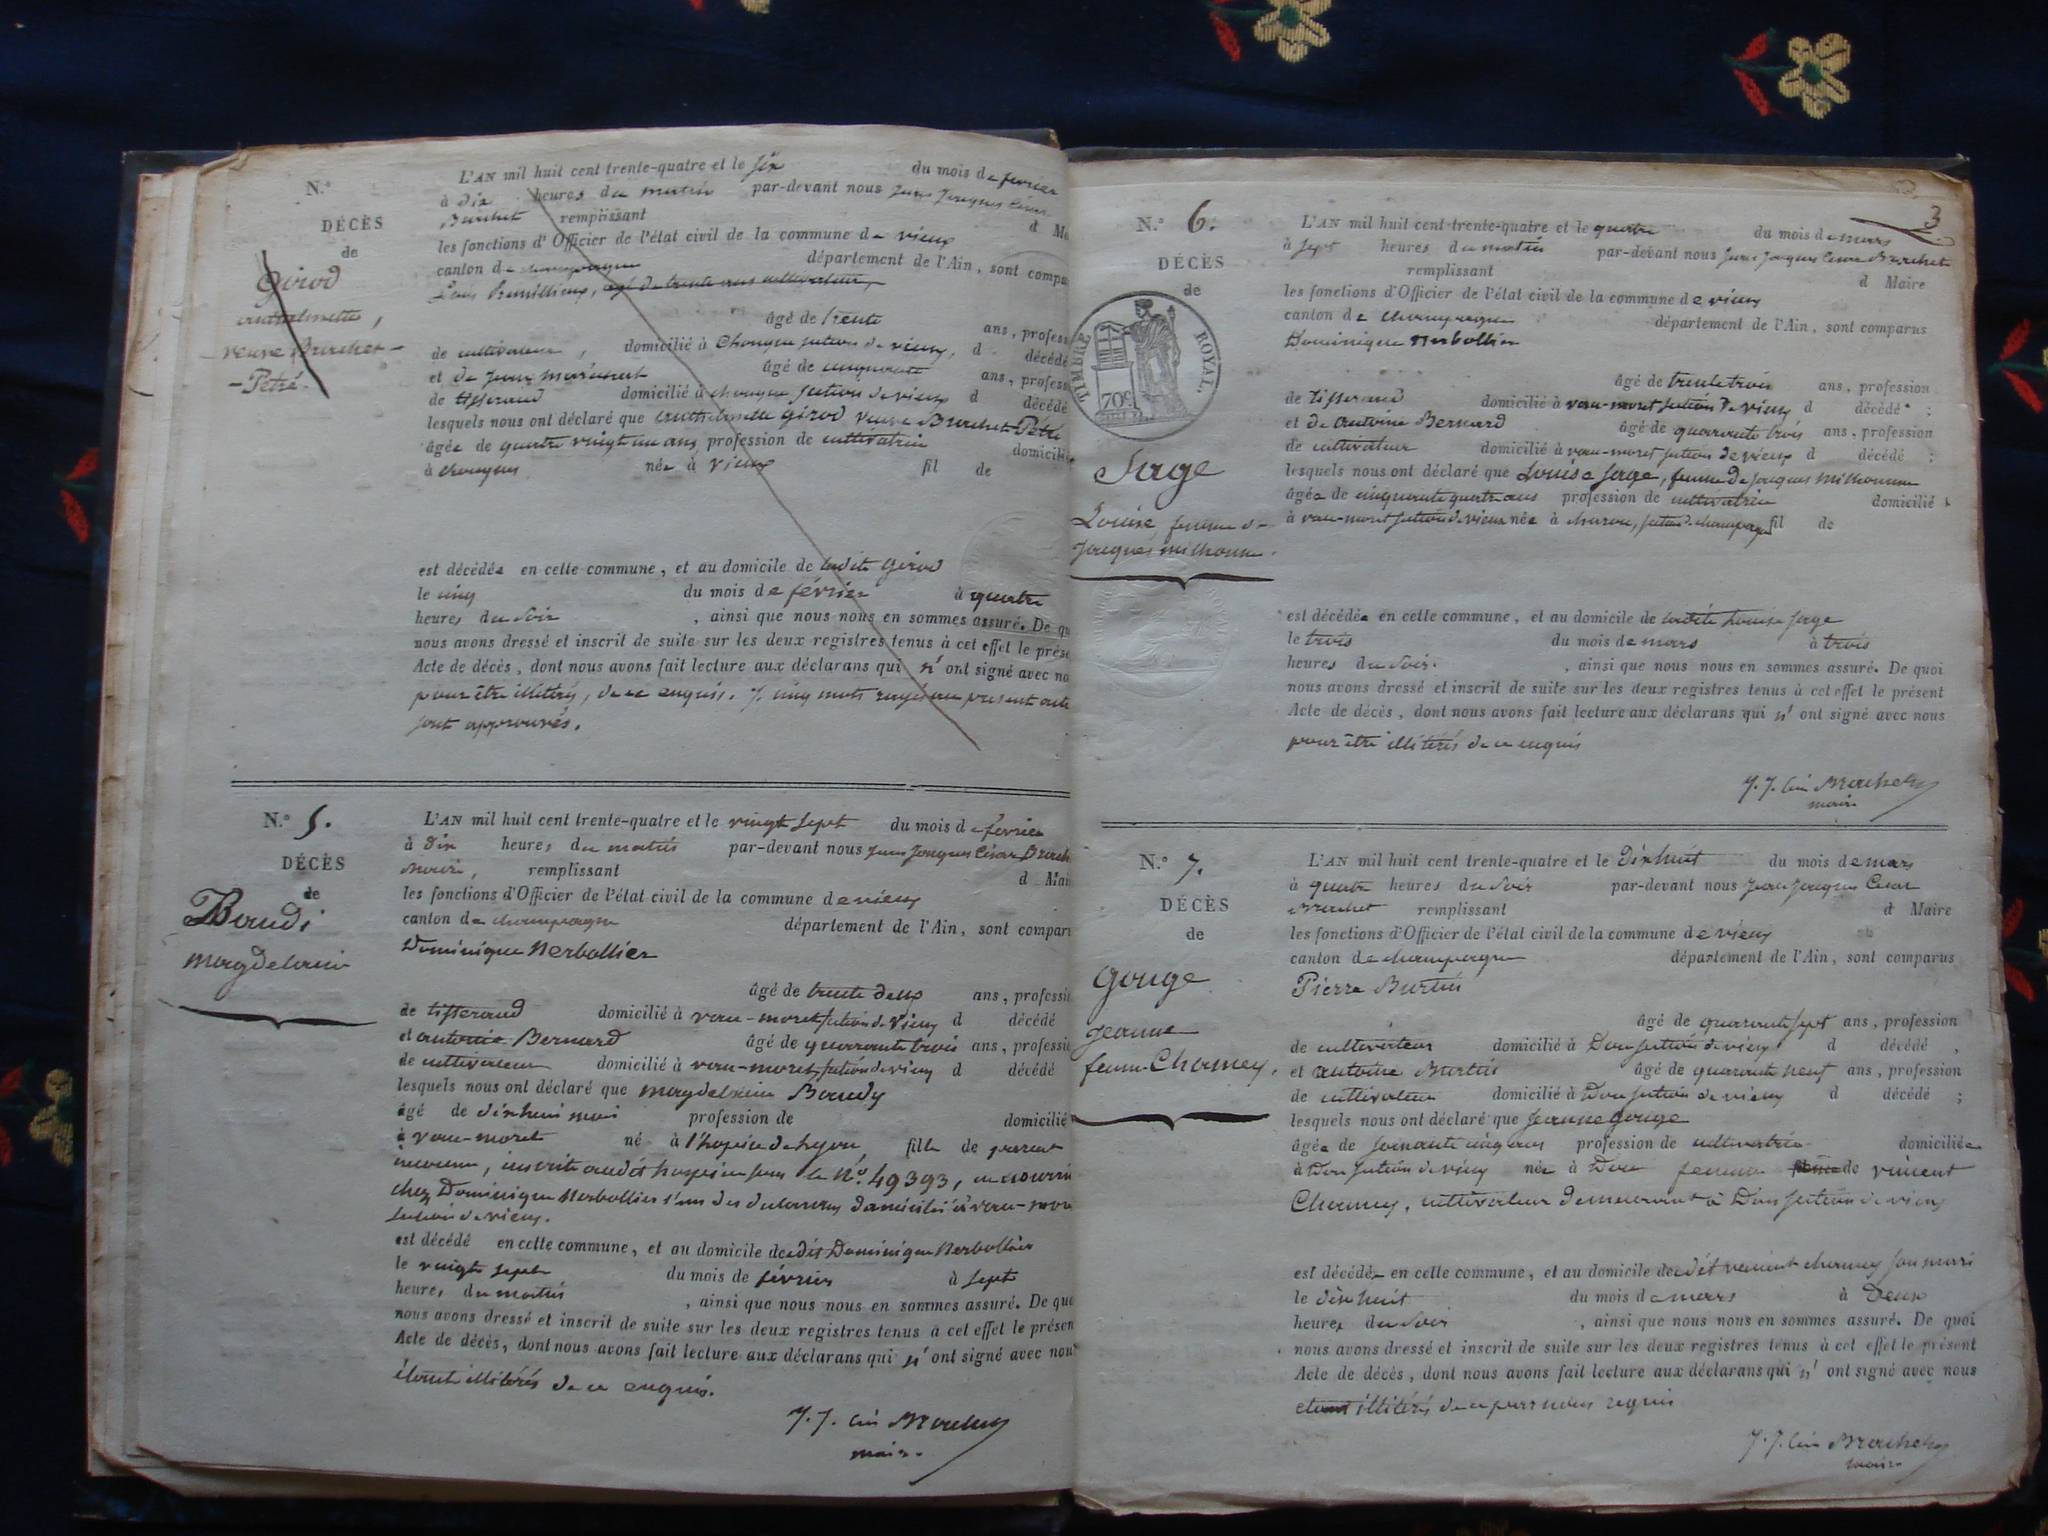 N.º
DÉCÈS
de
Girod
veuve Burchet
Pétré.
L'AN mil huit cent trente-quatre et le six du mois de fevrier
à dix heures du matin par-devant nous Jean Jacques César
Burchet remplissant d Ma
les fonctions d'Officier de l'état civil de la commune de vieux
canton de champagne département de l'Ain, sont compa
âgé de trente ans, profess
de cultivateur, domicilié à Chongnes section de vieux, d décédé
et de âgé de cinquante ans, profess
de tisserand domicilié à chongnes section de vieux d décédé
lesquels nous ont déclaré que Girod veuve Burchet Pétré
âgée de quatre vingt un ans, profession de cultivatrice domicilié
à chongnes née à vieux fil de
est décédée en cette commune, et au domicile de ladite Girod
le cinq du mois de février à quatre
heures du soir, ainsi que nous nous en sommes assuré. De qu
nous avons dressé et inscrit de suite sur les deux registres tenus à cet effet le prése
Acte de décès, dont nous avons fait lecture aux déclarans qui n'ont signé avec no
pour être illitérés, de ce enquis. cinq mots rayés au présent acte
sont approuvés.
N.º 5.
DÉCÈS
de
Baudi
magdelaine
L'AN mil huit cent trente-quatre et le vingt sept du mois de fevrier
à dix heures du matin par-devant nous Jean Jacques César Burch
Maire, remplissant d Mai
les fonctions d'Officier de l'état civil de la commune de vieux
canton de champagne département de l'Ain, sont compar
Dominique Nerbollier
âgé de trente deux ans, professi
de tisserand domicilié à vaux-moret section de vieux d décédé
et antoine Bernard âgé de quarante trois ans, professi
de cultivateur domicilié à vaux-moret section de vieux d décédé
lesquels nous ont déclaré que magdelaine Baudy
âgé de dix huit mois profession de domicilié
à vaux-moret né à l'hospice de Lyon, fille de parent
inconnu, inscrite audit hospice sous le N.º 49393, en nourrice
chez Dominique Nerbollier l'un des déclarans domicilié à vaux-more
section de vieux.
est décédé en cette commune, et au domicile dudit Dominique Nerbollier
le vingt sept du mois de février à sept
heures du matin, ainsi que nous nous en sommes assuré. De quo
nous avons dressé et inscrit de suite sur les deux registres tenus à cet effet le présen
Acte de décès, dont nous avons fait lecture aux déclarans qui n'ont signé avec nous
étant illitérés de ce enquis.
J. J. César Burchet
maire.
3
N.º 6.
DÉCÈS
de
TIMBRE ROYAL.
70c
Sage
Louise, femme de
Jacques milhomme.
L'AN mil huit cent trente-quatre et le quatre du mois de mars
à sept heures du matin par-devant nous Jean Jacques César Burchet
remplissant d Maire
les fonctions d'Officier de l'état civil de la commune de vieux
canton de champagne département de l'Ain, sont comparus
Dominique Nerbollier
âgé de trente trois ans, profession
de tisserand domicilié à vaux-moret section de vieux d décédé ;
et de antoine Bernard âgé de quarante trois ans, profession
de cultivateur domicilié à vaux-moret section de vieux d décédé ;
lesquels nous ont déclaré que Louise Sage, femme de Jacques milhomme
âgée de cinquante quatre ans profession de cultivatrice domicilié
à vaux-moret section de vieux née à section de champagne fil de
est décédée en cette commune, et au domicile de ladite Louise Sage
le trois du mois de mars à trois
heures du soir, ainsi que nous nous en sommes assuré. De quoi
nous avons dressé et inscrit de suite sur les deux registres tenus à cet effet le présent
Acte de décès, dont nous avons fait lecture aux déclarans qui n'ont signé avec nous
pour être illitérés de ce enquis
J. J. César Burchet
maire
N.º 7.
DÉCÈS
de
Gouge
Jeanne
femme Charney.
L'AN mil huit cent trente-quatre et le dix huit du mois de mars
à quatre heures du soir par-devant nous Jean Jacques César
Burchet remplissant d Maire
les fonctions d'Officier de l'état civil de la commune de vieux
canton de champagne département de l'Ain, sont comparus
Pierre Burtin
âgé de quarante sept ans, profession
de cultivateur domicilié à Don section de vieux d décédé ,
et antoine Burtin âgé de quarante neuf ans, profession
de cultivateur domicilié à Don section de vieux d décédé ;
lesquels nous ont déclaré que Jeanne Gouge
âgée de soixante cinq ans profession de cultivatrice domiciliée
à Don section de vieux née à Don femme de vincent
Charney, cultivateur demeurant à Don section de vieux
est décédée en cette commune, et au domicile dudit vincent charney son mari
le dix huit du mois de mars à deux
heures du soir, ainsi que nous nous en sommes assuré. De quoi
nous avons dressé et inscrit de suite sur les deux registres tenus à cet effet le présent
Acte de décès, dont nous avons fait lecture aux déclarans qui n'ont signé avec nous
étant illitérés de ce par nous requis
J. J. César Burchet
maire